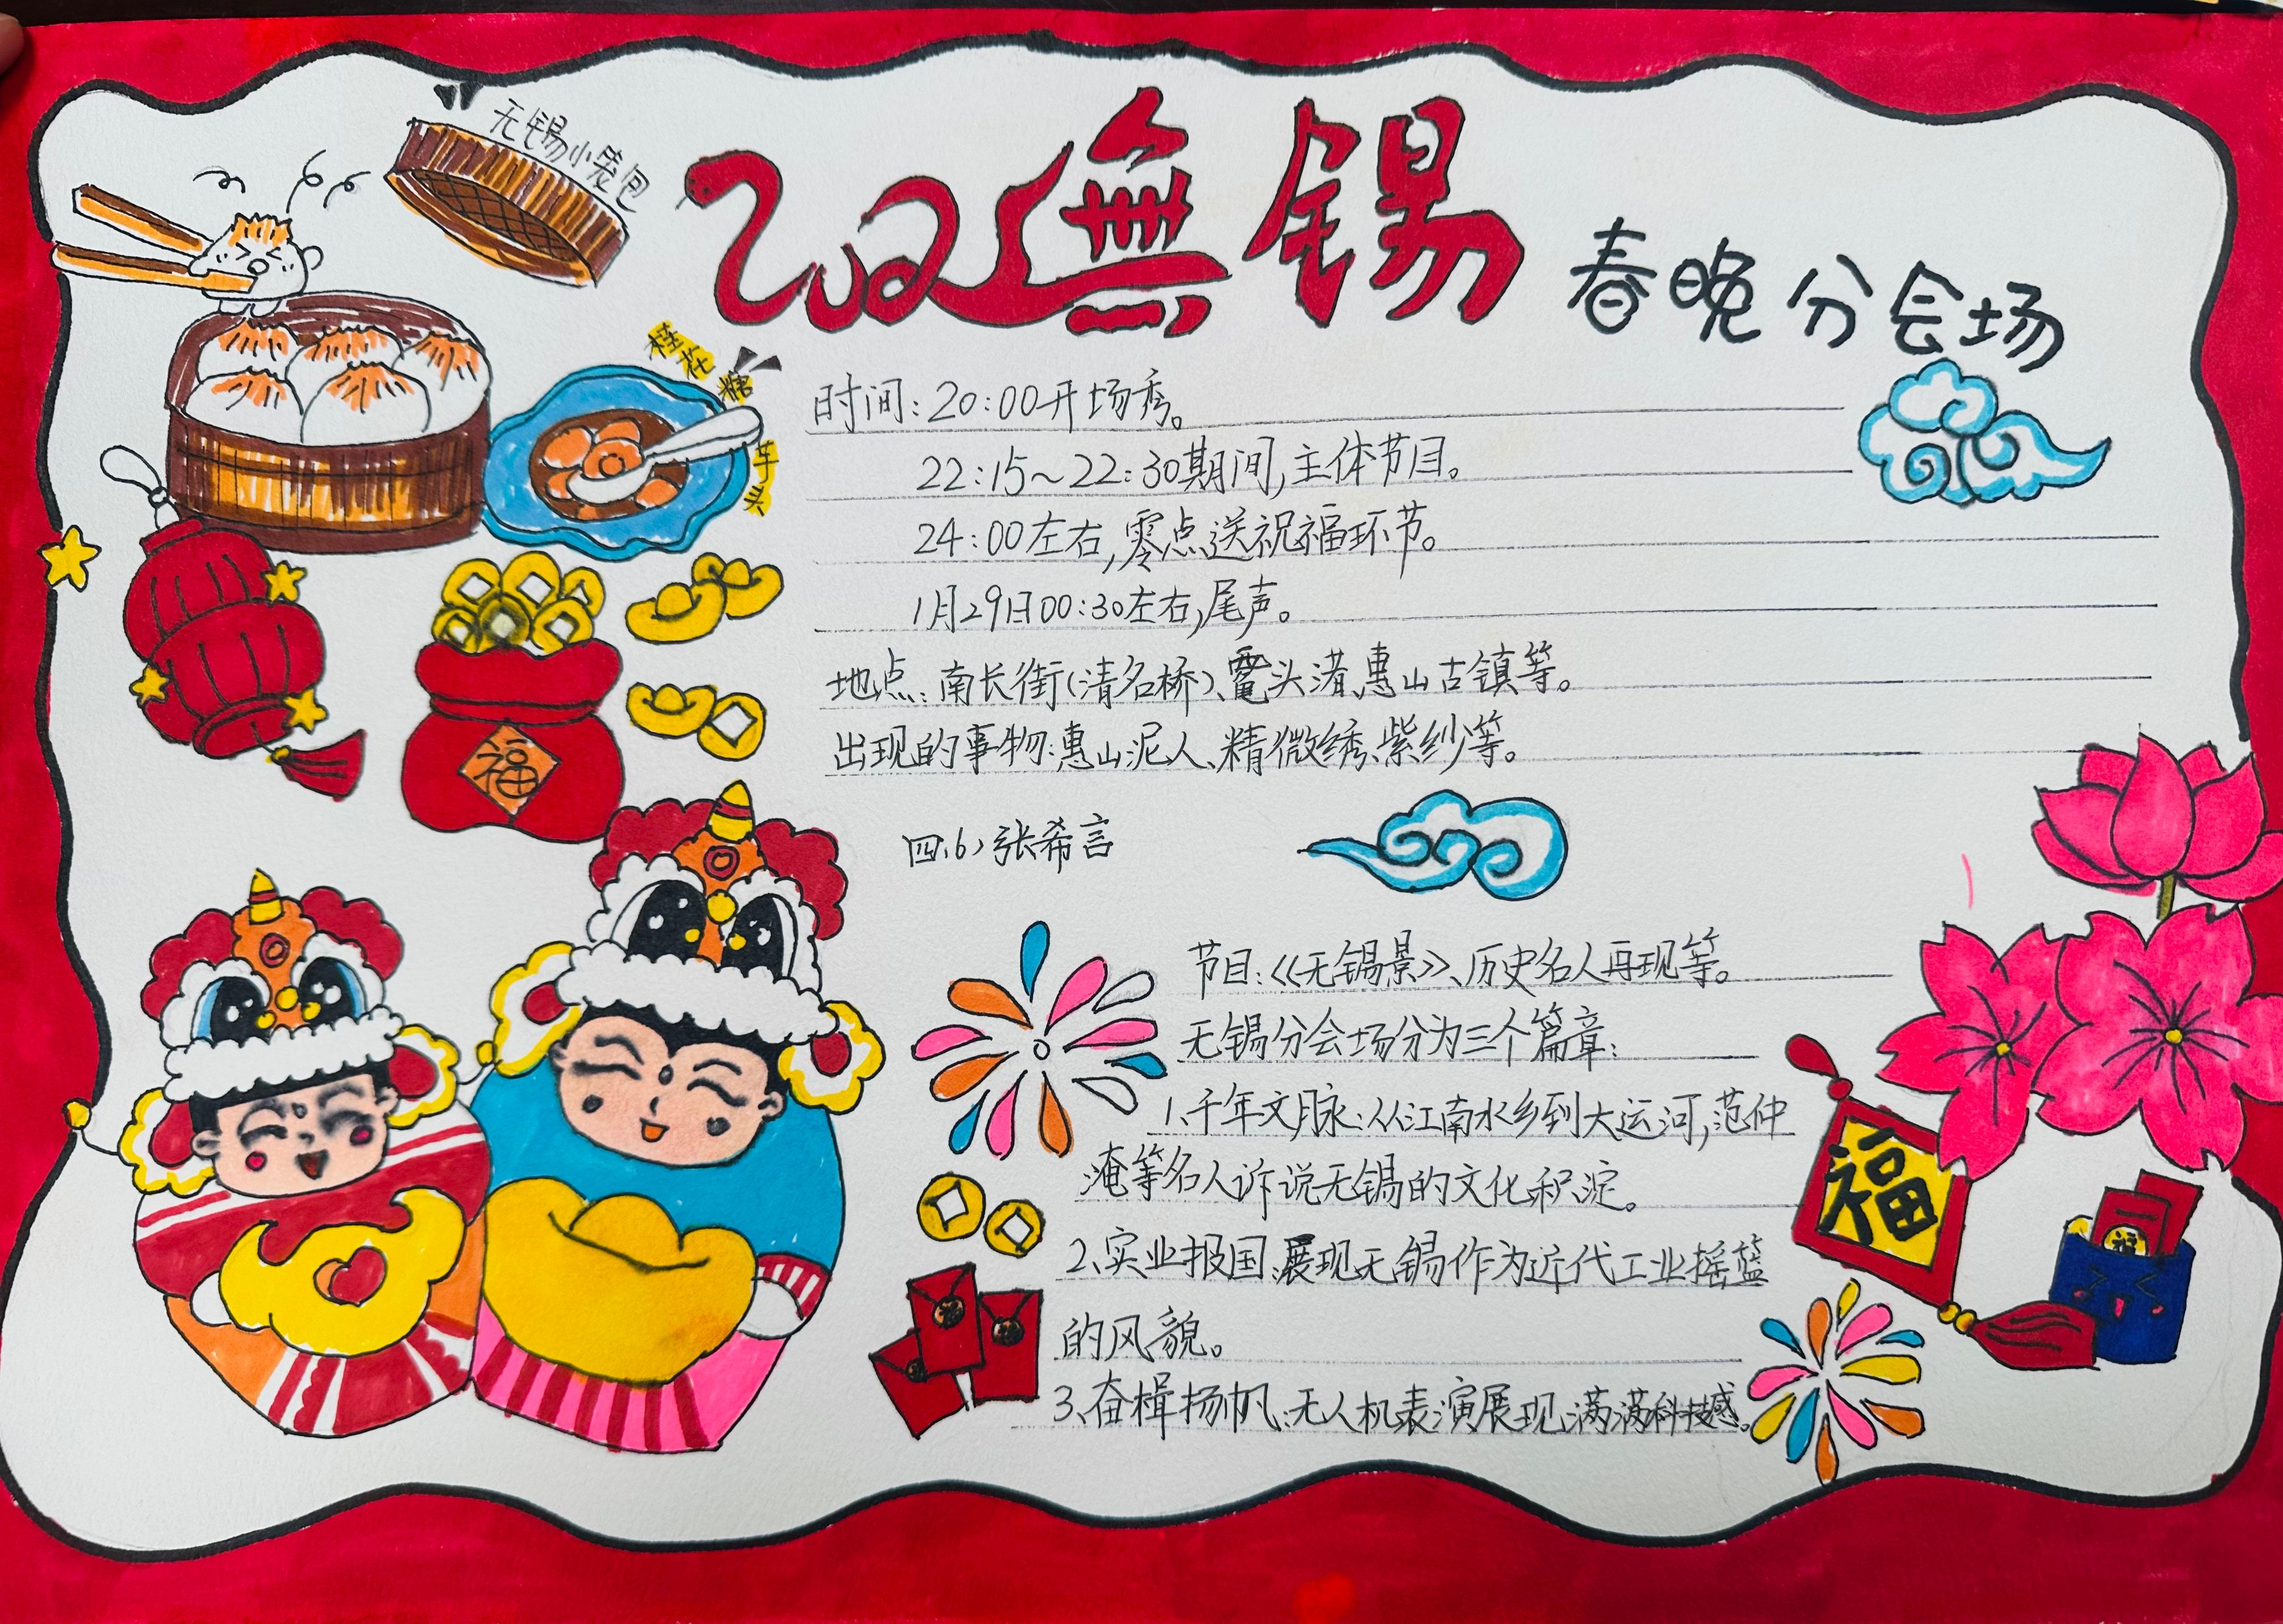 无锡小笼包
無锡
春晚分会场
桂花糖
芋头
时间:20:00开场秀。
22:15~22:30期间,主体节目。
24:00左右,零点送祝福环节。
1月29日00:30左右,尾声。
地点:南长街(清名桥)、鼋头渚、惠山古镇等。
出现的事物:惠山泥人、精微绣、紫纱等。
福
四(6)张希言
节目:《无锡景》、历史名人再现等。
无锡分会场分为三个篇章:
1、千年文脉:从江南水乡到大运河,范仲
淹等名人诉说无锡的文化积淀。
2、实业报国:展现无锡作为近代工业摇篮
的风貌。
3、奋楫扬帆:无人机表演展现满满科技感。
福
福